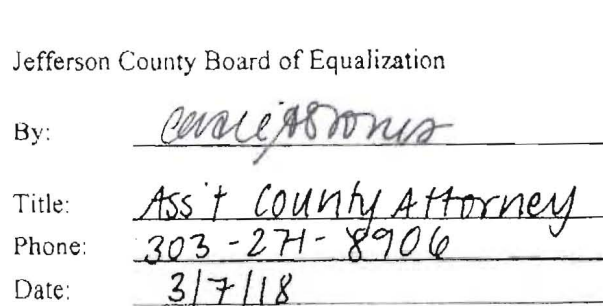 Jefferson County Board of Equalization
By:
Title: Ass't County Attorney
Phone: 303-271-8906
Date: 3/7/18